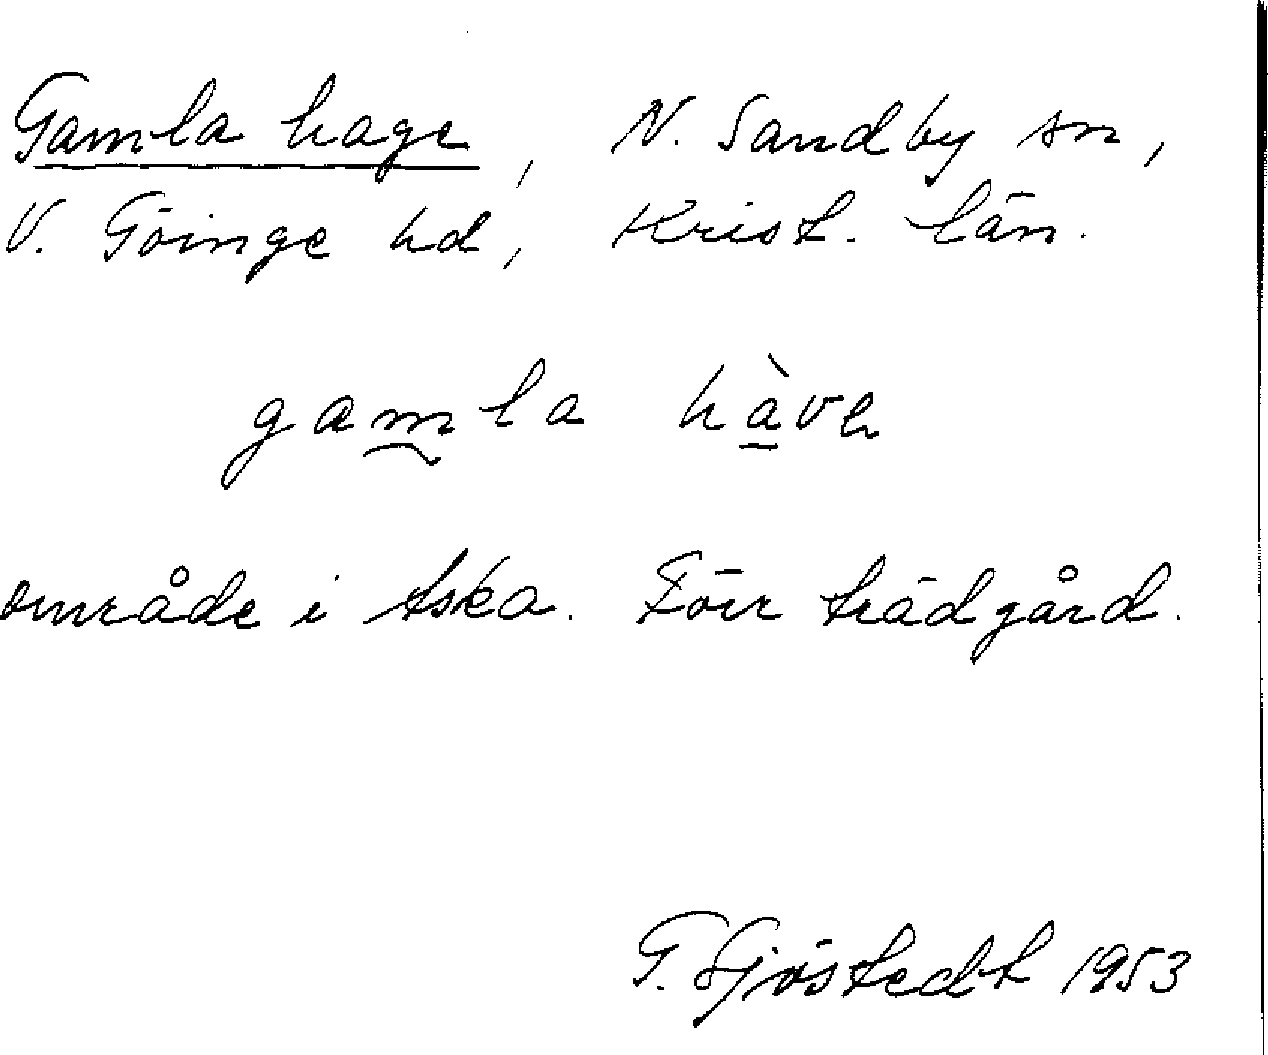 Gamla hage, N. Sandby sn,
V. Göinge hd, Krist. län.
gamla hàvə
område i Aska. Förr trädgård.
G. Sjöstedt 1953